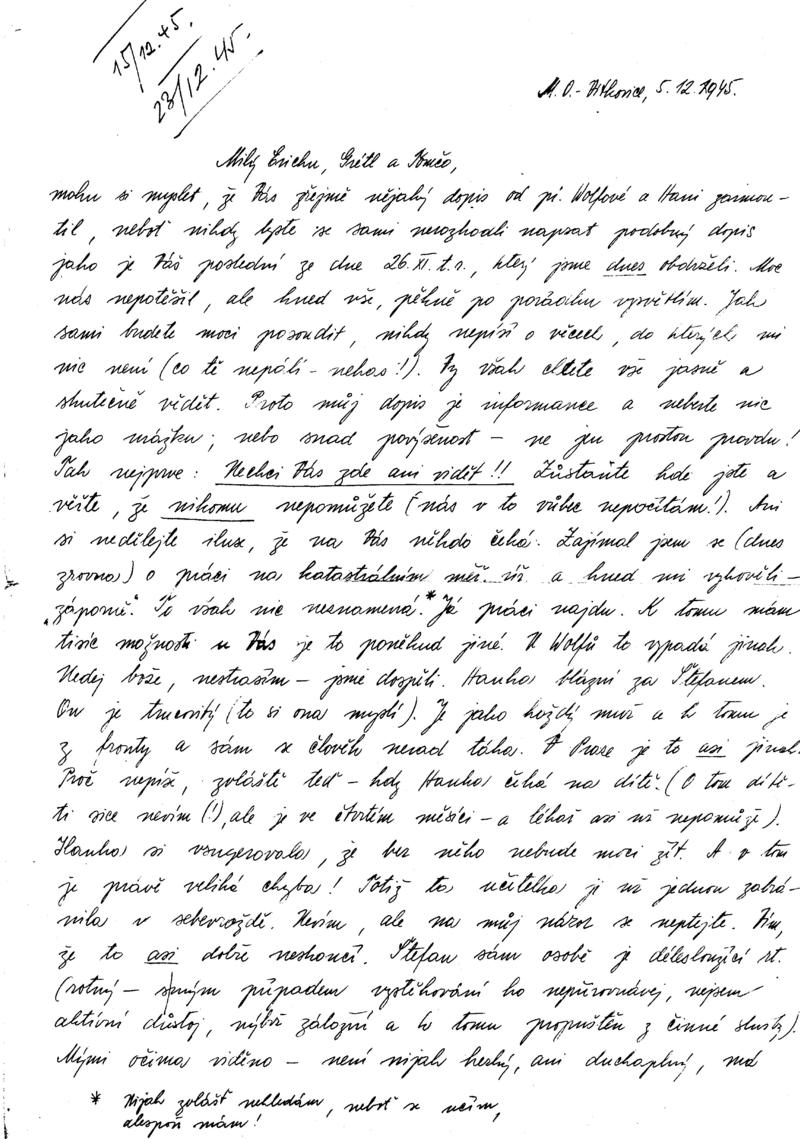 15/12.45.
23/12.45.
M. O.- Vítkovice, 5.12.1945.
Milý Erichu, Grétl a Tomčo,
mohu si myslet, že Vás zřejmě nějaký dopis od pí. Wolfové a Hani zarmou-
til, neboť nikdy byste se sami nerozhodli napsat podobný dopis
jako je Váš poslední ze dne 26. XI. t. r., který jsme dnes obdrželi. Moc
nás nepotěšil, ale hned vše, pěkně po pořádku vysvětlím. Jak
sami budete moci posoudit, nikdy nepíši o věcech, do kterých mi
nic není (co tě nepálí – nehas!). Vy však chcete vše jasně a
skutečně vědět. Proto můj dopis je informace a neberte nic
jako urážku; nebo snad povýšenost – ne jen prostou pravdu!
Tak nejprve: Nechci Vás zde ani vidět!! Zůstaňte kde jste a
věřte, že nikomu nepomůžete (nás v to vůbec nepočítám!). Ani
si nedělejte iluse, že na Vás někdo čeká. Zajímal jsem se (dnes
zrovna) o práci na katastrálním měř. úř. a hned mi vyhověli –
„záporně." To však nic neznamená.* Já práci najdu. K tomu mám
tisíc možností u Vás je to poněkud jiné. U Wolfů to vypadá jinak.
Nedej bože, nestraším – jsme dospělí. Hanka blázní za Štefanem.
On je trucovitý (to si ona myslí). Je jako každý muž a k tomu je
z fronty a sám se člověk nerad táhá. V Praze je to asi jinak.
Proč nepíše, zvláště teď – kdy Hanka čeká na dítě. (O tom dítě-
ti sice nevím (!), ale je ve čtvrtém měsíci – a lékař asi už nepomůže).
Hanka si vsugerovala, že bez něho nebude moci žít. A v tom
je právě veliká chyba! Totiž ta učitelka ji už jednou zabrá-
nila v sebevraždě. Nevím, ale na můj názor se neptejte. Vím,
že to asi dobře neskončí. Štefan sám osobě je délesloužící rt.
(rotný – s mým případem vystěhování ho nepřirovnávej, nejsem
aktivní důstoj, nýbrž záložní a k tomu propuštěn z činné služby).
Mými očima viděno – není nijak hezký, ani duchaplný, má
* Nijak zvlášť nehledám, neboť se učím,
alespoň mám!